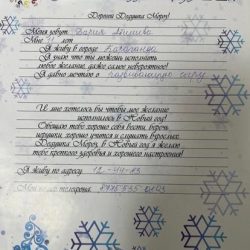 Дорогой Дедушка Мороз!
Меня зовут
Мне лет
Я живу в городе Караганда
Я знаю что ты можешь исполнить
любое желание, даже самое невероятное!
Я давно мечтаю о
И мне хотелось бы чтобы мое желание
исполнилось в Новый год!
Обещаю тебе хорошо себя вести, беречь
игрушки, хорошо учиться и слушать взрослых.
Дедушка Мороз, в Новый год я желаю
тебе крепкого здоровья и хорошего настроения!
Я живу по адресу: 12-44-83
номер телефона: